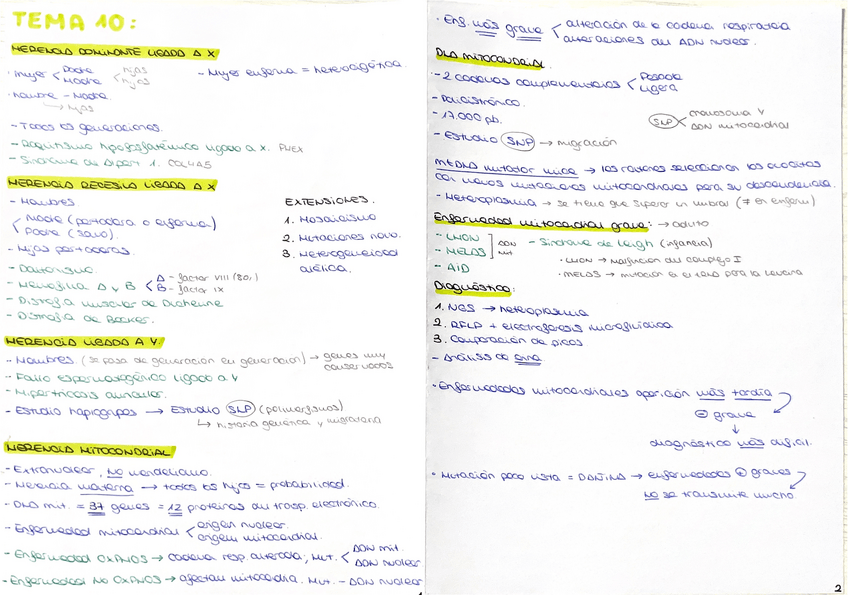 TEMA 10:
HERENCIA DOMINANTE LIGADO A X
· Mujer < Padre Madre < hijas hijos
- Mujer enferma = heterocigótica.
· hombre - Madre.
↳ hijas
- Todas las generaciones.
- Raquitismo hipofosfatémico ligado a X. PHEX
- Síndrome de Alport 1. COL4A5
HERENCIA RECESIVA LIGADA A X
- Hombres
Madre (portadora o enferma)
Padre (sano).
- Hijas portadoras.
- Daltonismo.
- Hemofilia A y B < A - factor VIII (80%) B - factor IX
- Distrofia muscular de Duchenne
- Distrofia de Becker.
EXTENSIONES.
1. Mosaicismo
2. Mutaciones novo.
3. Heterogeneidad alélica.
HERENCIA LIGADA A Y.
- Hombres (se pasa de generación en generación) → genes muy conservados
- Fallo espermatogénico ligado a Y
- Hipertricosis auricular.
- Estudio haplogrupos → Estudio SNP (polimorfismos)
↳ historia genética y migratoria
HERENCIA MITOCONDRIAL
- Extranuclear, NO mendeliano.
- Herencia materna → todos los hijos = probabilidad.
- DNA mit. = 37 genes = 12 proteínas del transp. electrónico.
- Enfermedad mitocondrial < origen nuclear. origen mitocondrial.
- Enfermedad OXPHOS → cadena resp. alterada, Mut. < ADN mit. ADN nuclear
- Enfermedad NO OXPHOS → afectan mitocondria. Mut. - ADN nuclear
· Enf. más grave < alteración de la cadena respiratoria alteraciones del ADN nuclear.
DNA mitocondrial.
- 2 cadenas complementarias < Pesada Ligera
- Policistrónico.
- 17.000 pb.
- Estudio SNP → migración
SNP < cromosoma Y ADN mitocondrial
mtDNA mutador mice → las ratones seleccionan los ovocitos
con menos mutaciones mitocondriales para su descendencia.
- Heteroplasmia → se tiene que superar un umbral (≠ en enferm)
Enfermedad mitocondrial grave: → adulto
- LHON
- MELAS ] ADN mit
- AID
- Síndrome de Leigh (infancia)
· LHON → malfunción del complejo I
· MELAS → mutación en el tRNA para la leucina
Diagnóstico:
1. NGS → heteroplasmia
2. RFLP + electroforesis microfluídica
3. Comparación de picos
- Análisis de orina
· Enfermedades mitocondriales aparición más tardía
⊖ grave
↓
diagnóstico más difícil.
· Mutación poco vista = → enfermedades ⊕ graves
NO se transmite mucho
2